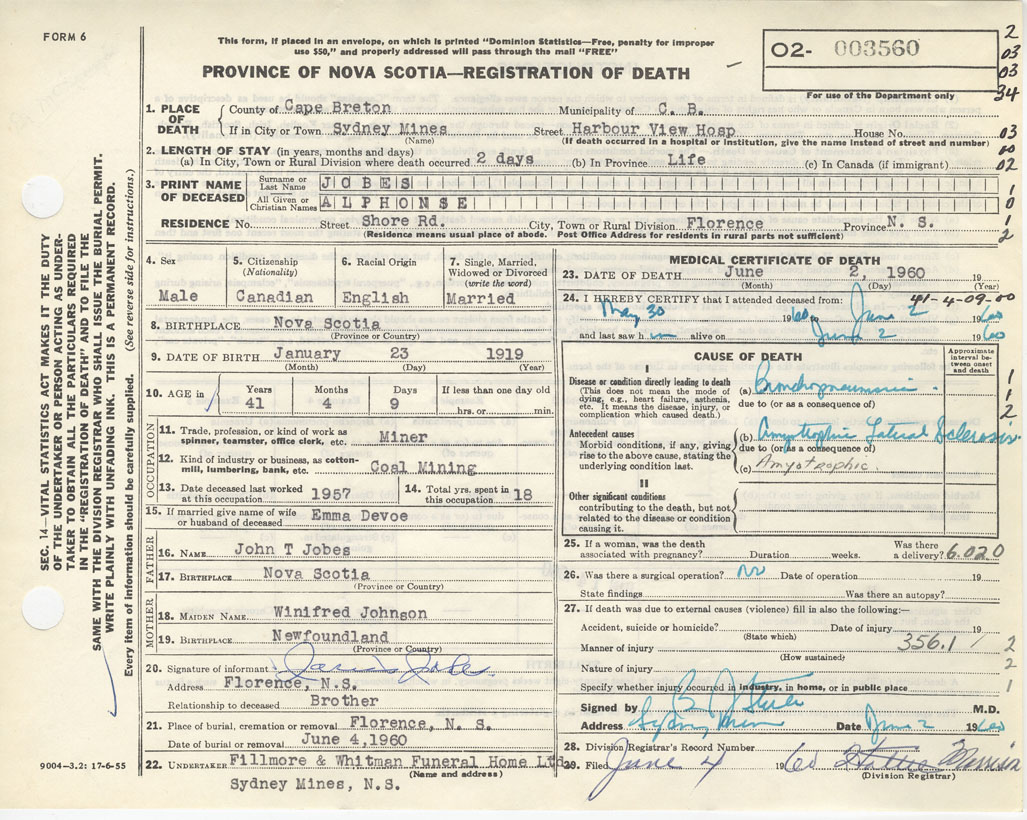 FORM 6
This form, if placed in an envelope, on which is printed "Dominion Statistics—Free, penalty for improper
use $50," and properly addressed will pass through the mail "FREE"
PROVINCE OF NOVA SCOTIA—REGISTRATION OF DEATH
O2- 003560
For use of the Department only
2
03
03
34
1. PLACE OF DEATH
County of Cape Breton Municipality of C. B.
If in City or Town Sydney Mines Street Harbour View Hosp House No.
(Name) (If death occurred in a hospital or institution, give the name instead of street and number)
03
00
02
2. LENGTH OF STAY (in years, months and days)
(a) In City, Town or Rural Division where death occurred 2 days (b) In Province Life (c) In Canada (if immigrant)
3. PRINT NAME OF DECEASED
Surname or Last Name JOBES
All Given or Christian Names ALPHONSE
1
0
1
2
RESIDENCE No. Street Shore Rd. City, Town or Rural Division Florence Province N. S.
(Residence means usual place of abode. Post Office Address for residents in rural parts not sufficient)
4. Sex
Male
5. Citizenship
(Nationality)
Canadian
6. Racial Origin
English
7. Single, Married,
Widowed or Divorced
(write the word)
Married
8. BIRTHPLACE Nova Scotia
(Province or Country)
9. DATE OF BIRTH January 23 1919
(Month) (Day) (Year)
10. AGE in
Years Months Days If less than one day old
41 4 9 hrs. or min.
OCCUPATION
11. Trade, profession, or kind of work as
spinner, teamster, office clerk, etc. Miner
12. Kind of industry or business, as cotton-
mill, lumbering, bank, etc. Coal Mining
13. Date deceased last worked
at this occupation 1957
14. Total yrs. spent in
this occupation 18
15. If married give name of wife
or husband of deceased Emma Devoe
FATHER
16. NAME John T Jobes
17. BIRTHPLACE Nova Scotia
(Province or Country)
MOTHER
18. MAIDEN NAME Winifred Johnson
19. BIRTHPLACE Newfoundland
(Province or Country)
20. Signature of informant James Jobes
Address Florence, N.S.
Relationship to deceased Brother
21. Place of burial, cremation or removal Florence, N. S.
Date of burial or removal June 4,1960
22. UNDERTAKER Fillmore & Whitman Funeral Home Ltd
(Name and address)
Sydney Mines, N.S.
MEDICAL CERTIFICATE OF DEATH
23. DATE OF DEATH June 2, 1960 19
(Month) (Day) (Year)
24. I HEREBY CERTIFY that I attended deceased from: 41-4-09-00
May 30 1960 to June 2 1960
and last saw him alive on June 2 1960
CAUSE OF DEATH
Approximate
interval be-
tween onset
and death
I
Disease or condition directly leading to death
(This does not mean the mode of
dying, e.g., heart failure, asthenia,
etc. It means the disease, injury, or
complication which caused death.)
(a) Bronchopneumonia
due to (or as a consequence of)
1
1
2
Antecedent causes
Morbid conditions, if any, giving
rise to the above cause, stating the
underlying condition last.
(b) Amytrophic Lateral Sclerosis
due to (or as a consequence of)
(c) Amyotrophic.
II
Other significant conditions
contributing to the death, but not
related to the disease or condition
causing it.
25. If a woman, was the death
associated with pregnancy? Duration weeks. Was there
a delivery? 6.020
26. Was there a surgical operation? No Date of operation 19
State findings Was there an autopsy?
27. If death was due to external causes (violence) fill in also the following:—
Accident, suicide or homicide? Date of injury 19
(State which)
Manner of injury 356.1 / 2
(How sustained)
Nature of injury 2
Specify whether injury occurred in industry, in home, or in public place 1
Signed by M.D.
Address Sydney Mines Date June 2 1960
28. Division Registrar's Record Number
29. Filed June 4 1960
(Division Registrar)
SEC. 14—VITAL STATISTICS ACT MAKES IT THE DUTY
OF THE UNDERTAKER OR PERSON ACTING AS UNDER-
TAKER TO OBTAIN ALL THE PARTICULARS REQUIRED
IN THE "REGISTRATION OF DEATH" AND TO FILE THE
SAME WITH THE DIVISION REGISTRAR WHO SHALL ISSUE THE BURIAL PERMIT.
WRITE PLAINLY WITH UNFADING INK. THIS IS A PERMANENT RECORD.
Every item of information should be carefully supplied. (See reverse side for instructions.)
9004—3.2: 17-6-55